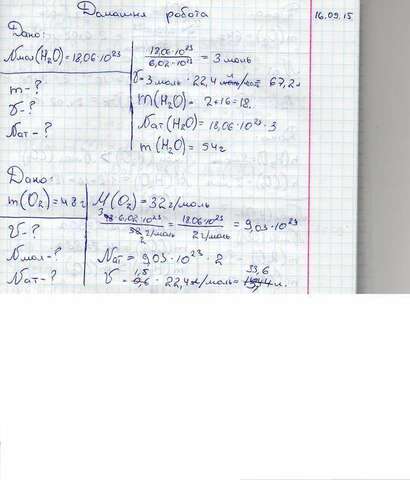 Домашня робота
16.09.15
Дано:
Nмол(H₂O)=18,06·10²³
m-?
V-?
Nат-?
18,06·10²³/6,02·10²³ = 3 моль
V=3 моль·22,4 67,2
M(H₂O)= 2+16=18.
Nат(H₂O)=18,06·10²³·3
m(H₂O)=54г
Дано:
m(O₂)=48г
V-?
Nмол-?
Nат-?
M(O₂)=32г/моль
48·6,02·10²³/32г/моль = 18,06·10²³/2г/моль = 9,03·10²³
3
2
Nат = 9,03·10²³·2
1,5 33,6
V = ·22,4л/моль= л.